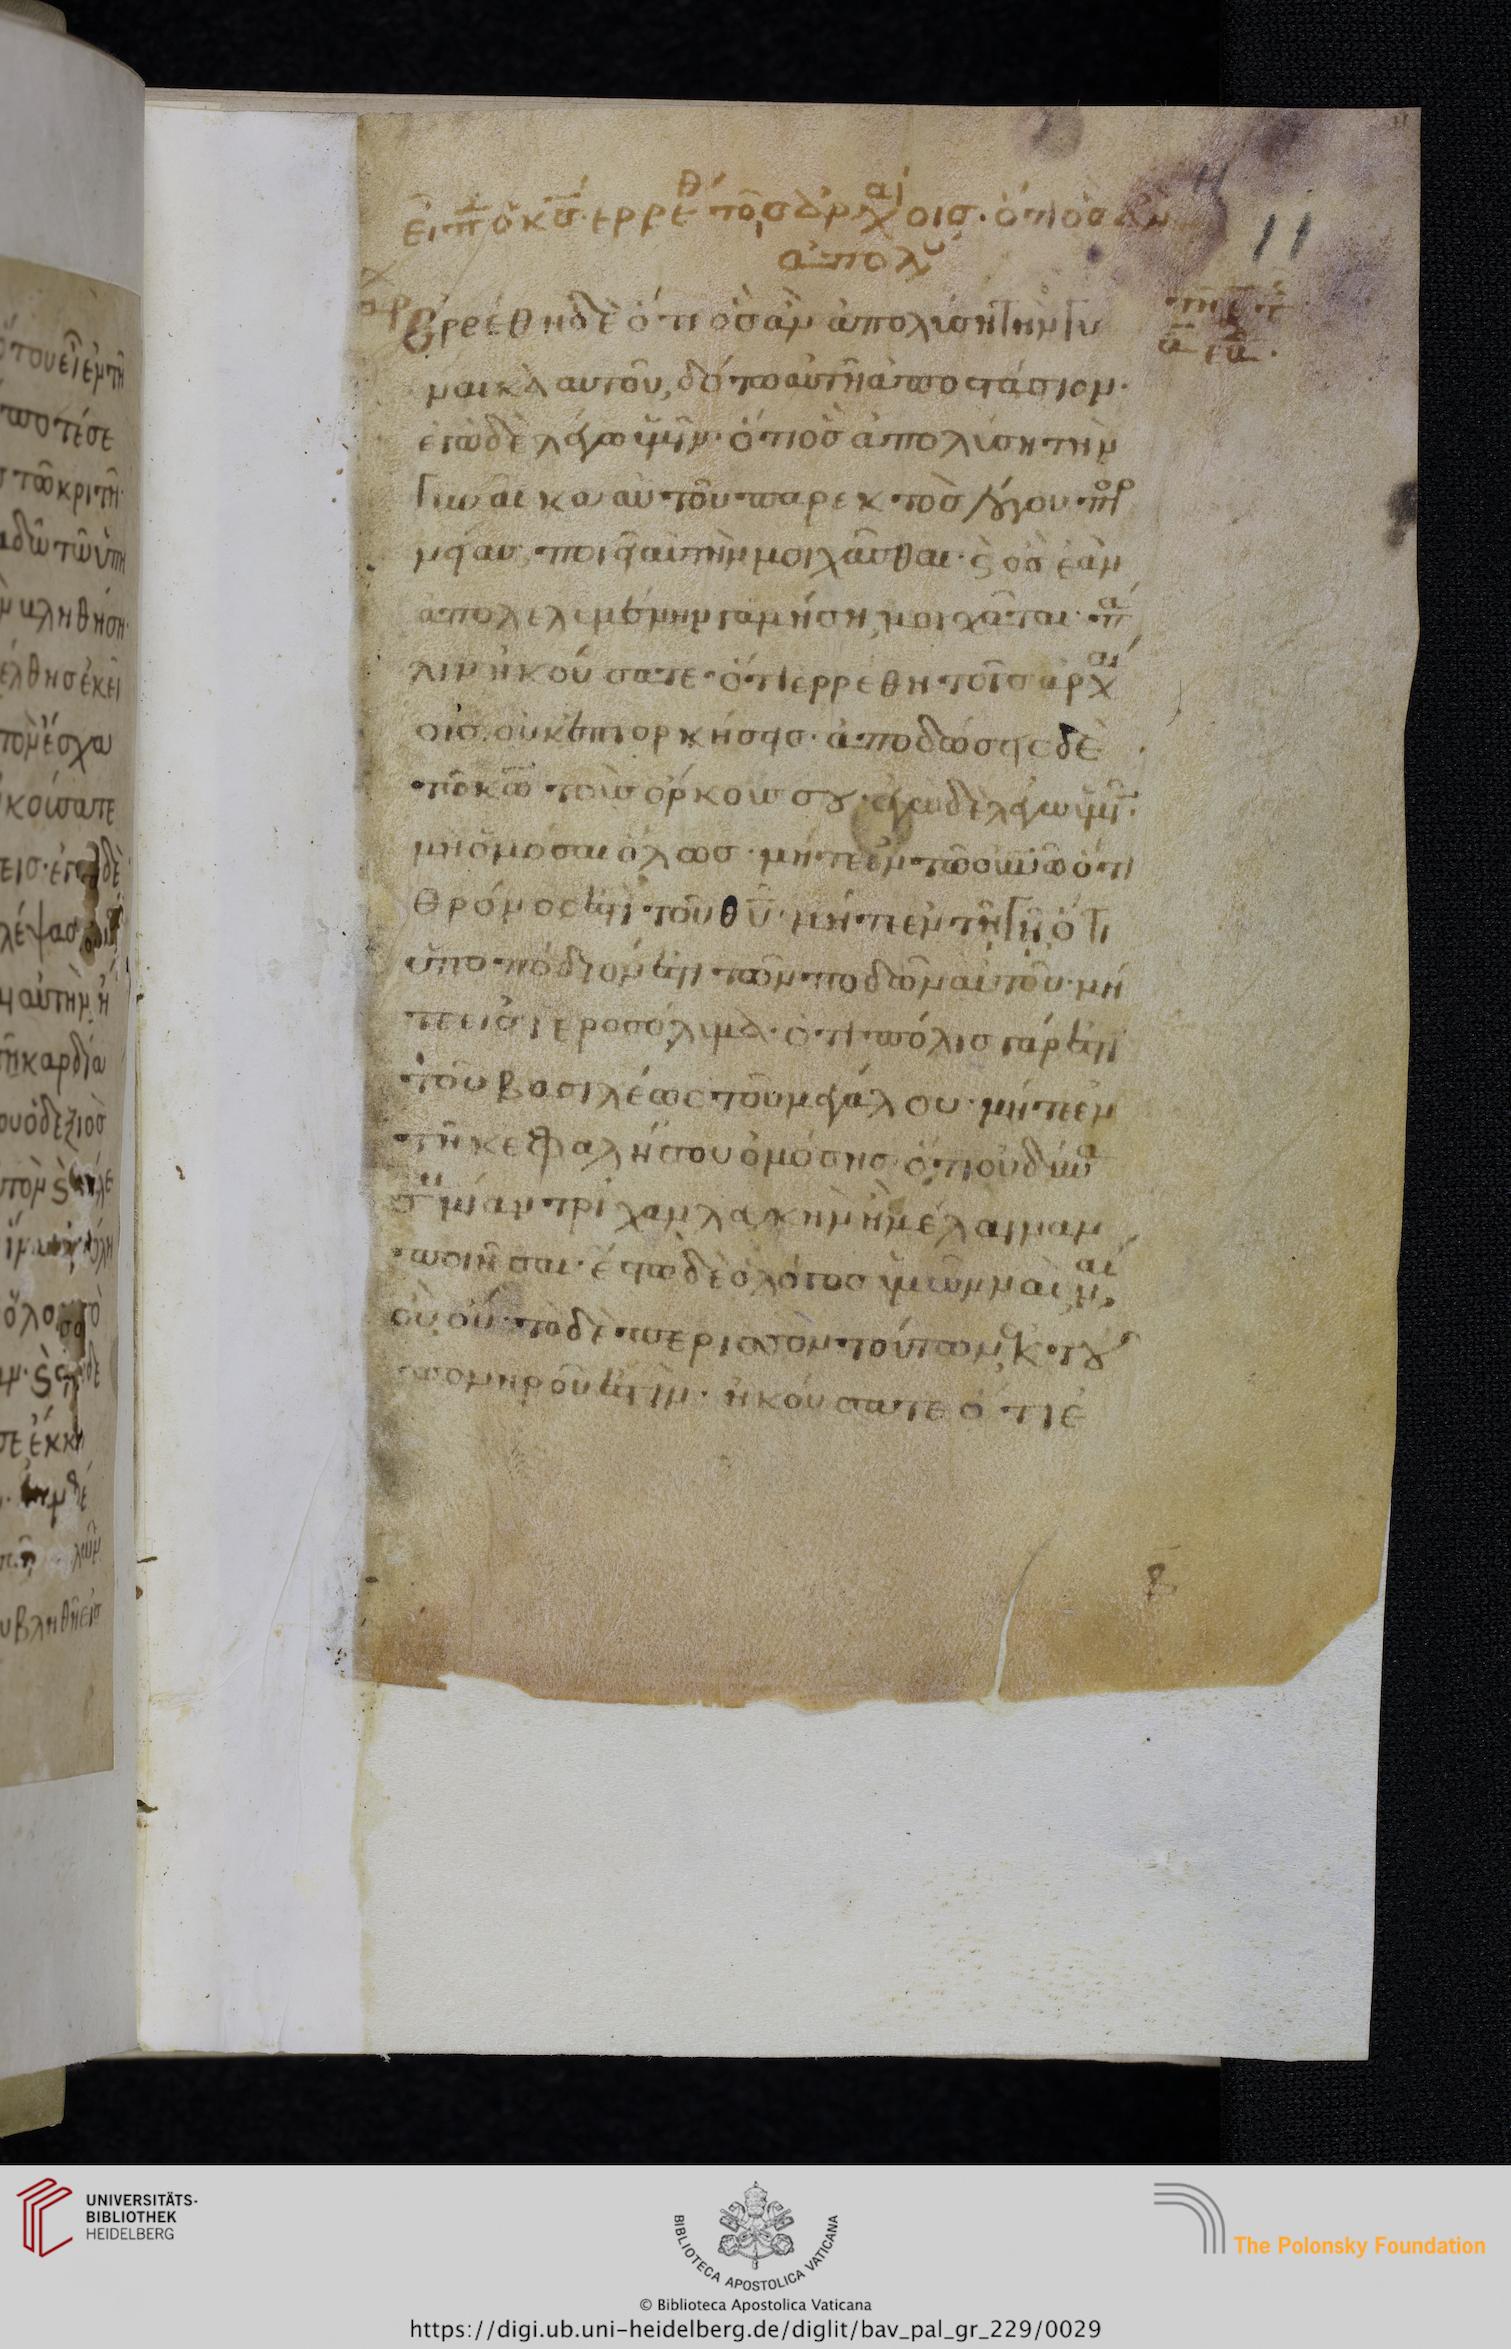 εἶπ ὁ κς. ερρεθ τοῖσ ἀρχαίοισ. ὅτι ὃσ ἂν
ἀπολύ
11
Ερρέθη δὲ ὅτι ὃσ ἂν ἀπολύση τὴν γυ
ναῖκα αυτοῦ, δότω αὐτῆ ἀποστάσιον.
ἐγὼ δὲ λέγω ὑμῖν. ὅτι ὃσ ἀπολύση τὴν
γυναῖκα αὐτοῦ παρεκτὸσ λόγου πορ
νείασ, ποιεῖ αὐτὴν μοιχᾶσθαι. ϗ ὃσ ἐὰν
ἀπολελυμένην γαμήση, μοιχᾶται. πά
λιν ἠκούσατε ὅτι ερρέθη τοῖσ ἀρχαί
οισ. οὐκ ἐπιορκήσεισ. ἀποδώσεις δὲ
τῶ κω τοὺσ ὅρκουσ σου. ἐγὼ δὲ λέγω ὑμῖν.
μὴ ὀμόσαι ὅλωσ. μήτε ἐν τῶ οὐνῶ ὅτι
θρόνος ἐστὶ τοῦ θυ. μήτε ἐν τῆ γῆ ὅτι
ὑποπόδιόν ἐστι τῶν ποδῶν αὐτοῦ. μή
τε εισ ἱεροσόλυμα. ὅτι πόλισ
τοῦ βασιλέως τοῦ μεγάλου. μήτε ἐν
τῆ κεφαλῆ σου ὀμόσησ. ὅτι οὐ δύνα
σαι μίαν τρίχαν λευκὴν ἢ μέλαιναν
ποιῆσαι. ἔστω δὲ ὁ λόγοσ ὑμῶν ναὶ ναί
οὒ οὔ. τὸ δὲ περισσὸν τούτων ἐκ τοῦ
πονηροῦ ἐστιν. ἠκούσατε ὅτι ἐ
UNIVERSITÄTS-
BIBLIOTHEK
HEIDELBERG
BIBLIOTECA APOSTOLICA VATICANA
The Polonsky Foundation
© Biblioteca Apostolica Vaticana
https://digi.ub.uni-heidelberg.de/diglit/bav_pal_gr_229/0029